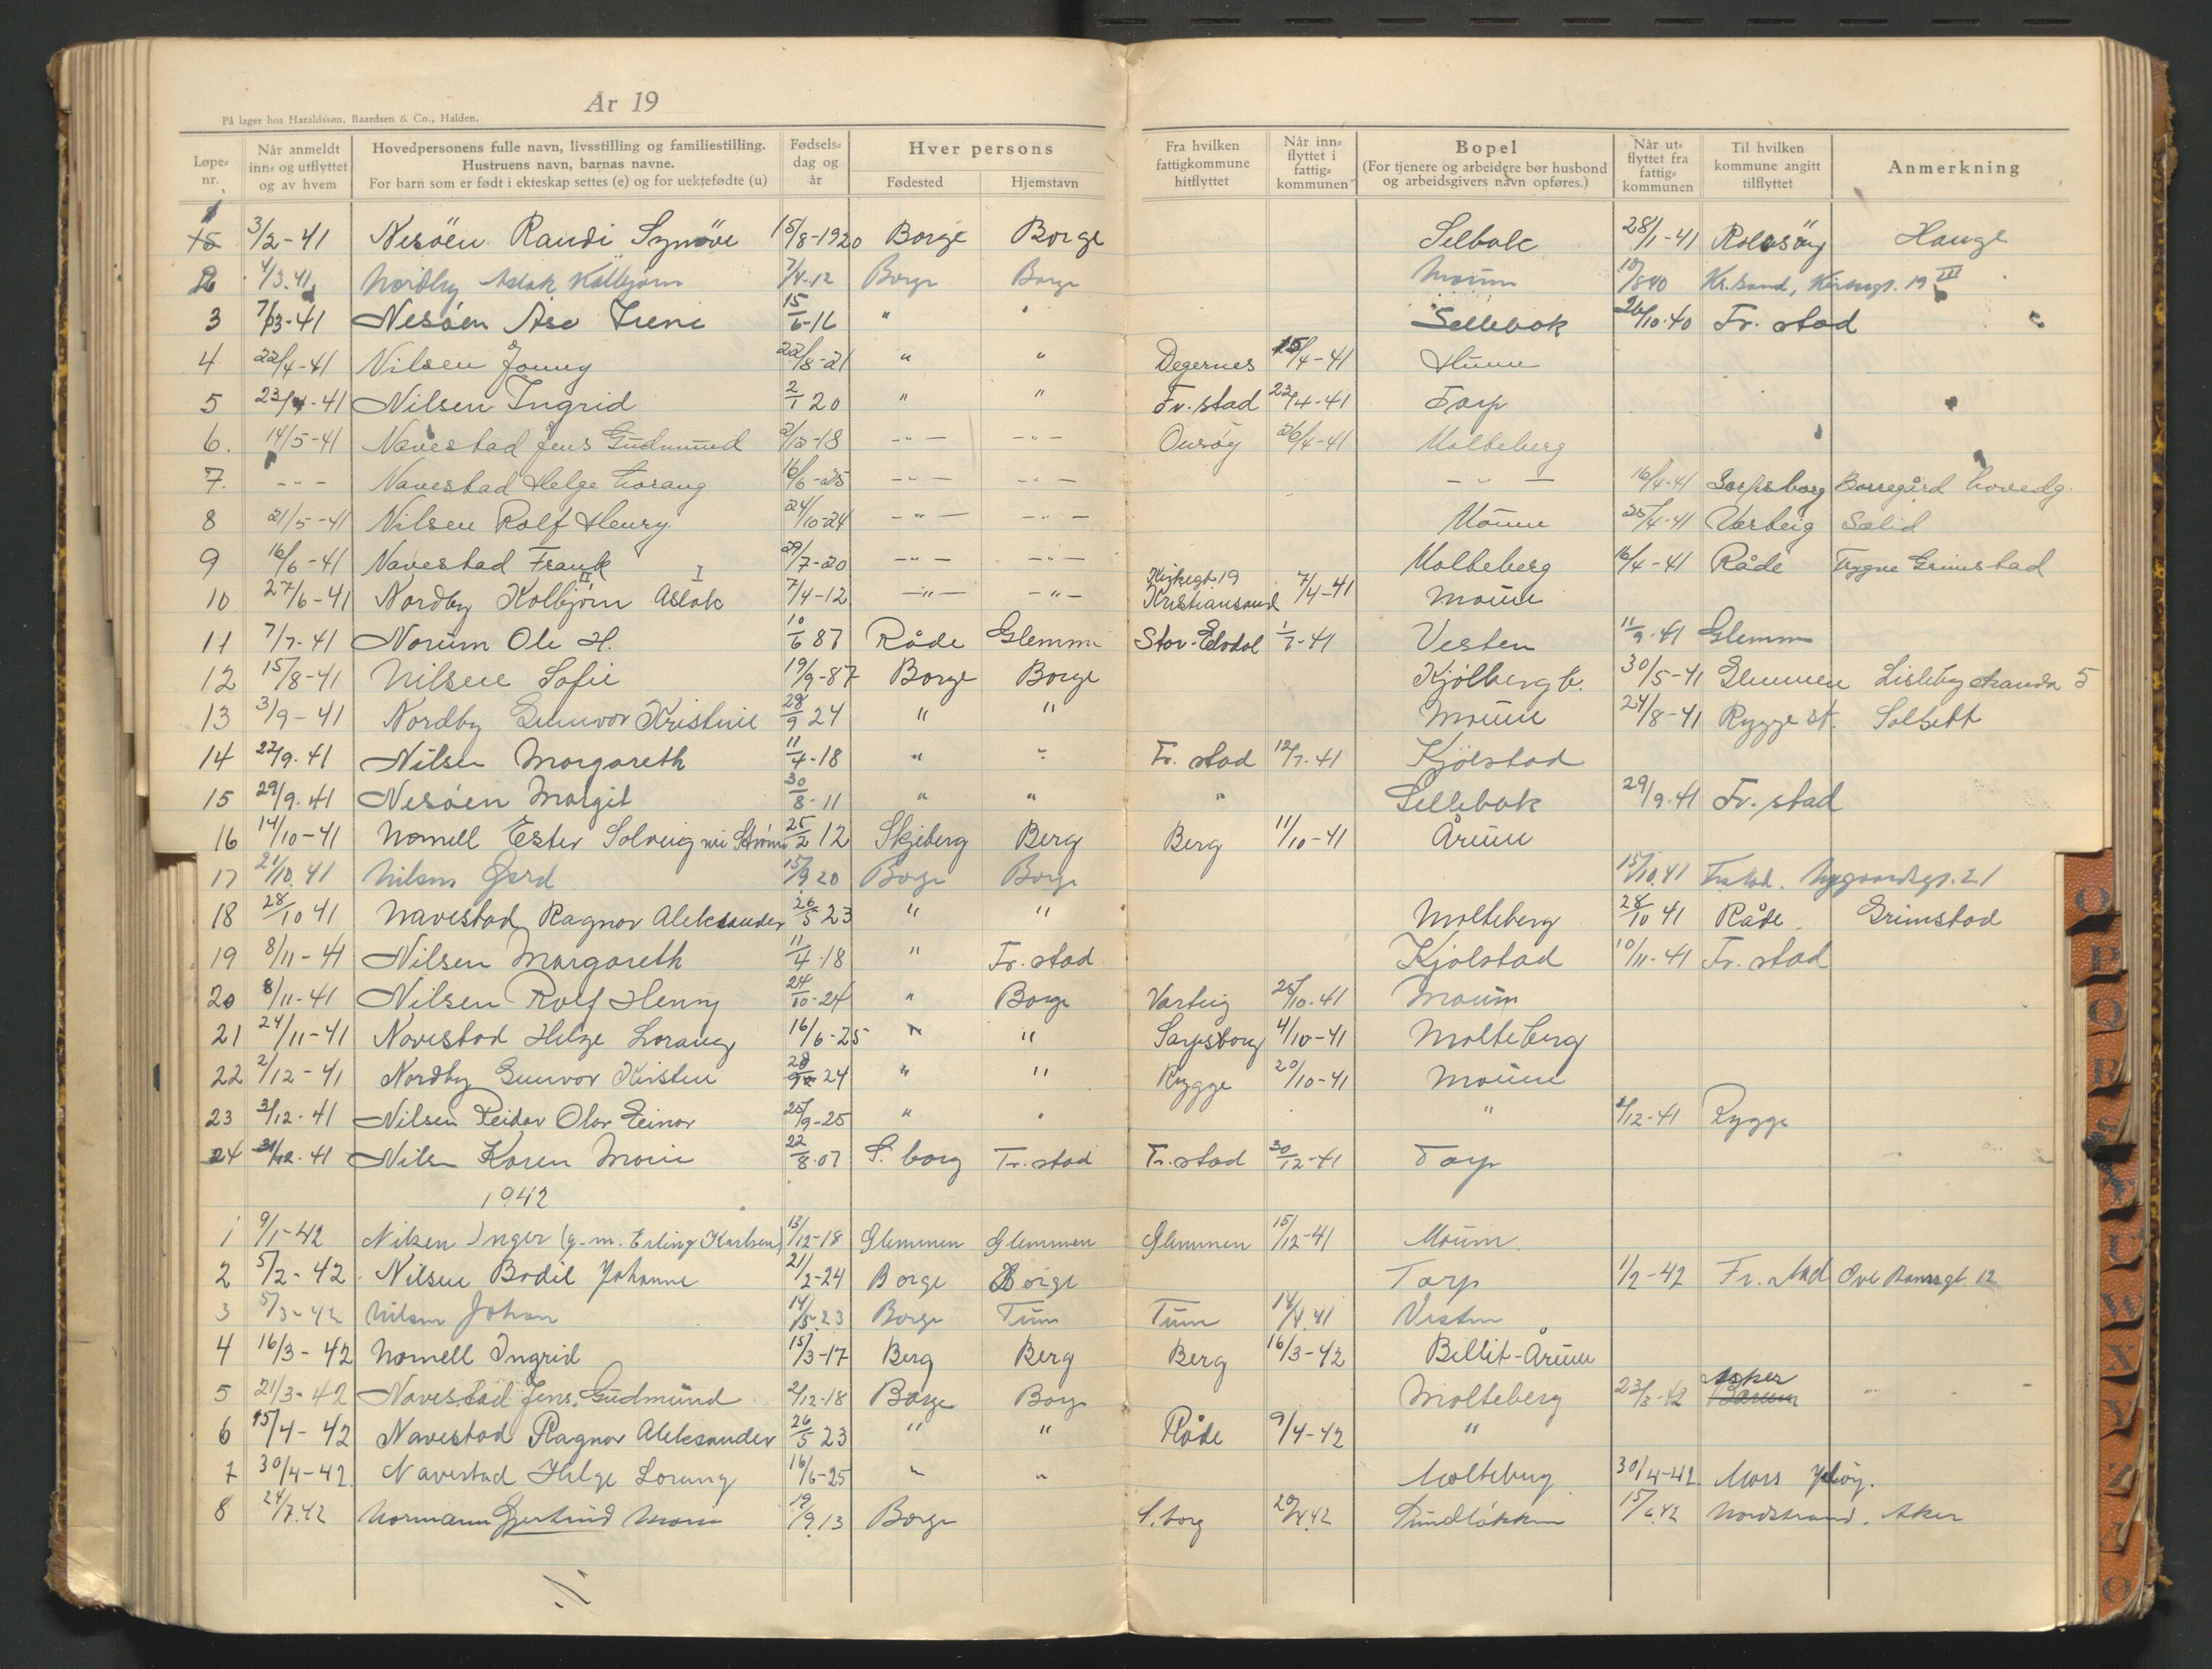 År 19
På lager hos Haraldssøn, Baardsen & Co., Halden.
Løpe-nr. | Når anmeldt inn- og utflyttet og av hvem | Hovedpersonens fulle navn, livsstilling og familiestilling. Hustruens navn, barnas navne. For barn som er født i ekteskap settes (e) og for uektefødte (u) | Fødsels-dag og år | Hver persons Fødested | Hjemstavn | Fra hvilken fattigkommune hitflyttet | Når inn-flyttet i fattig-kommunen | Bopel (For tjenere og arbeidere bør husbond og arbeidsgivers navn opføres.) | Når ut-flyttet fra fattig-kommunen | Til hvilken kommune angitt tilflyttet | Anmerkning
1 3/2-41 Nesöen Randi Synnöve 15/8-1920 Borge Borge Selbak 28/1-41 Rolvsöy Hauge
2 4/3.41 Nordby Aslak Kolbjørn 7/4-12 Borge Borge Moum 18/8 40 Kr.sand, Kirkegt. 19 III
3 7/3-41 Nesöen Åse Irene 15/6-16 " " Sellebak 26/10.40 Fr. stad
4 22/4-41 Nilsen Jonny 22/8-21 " " Degernes 15/4-41 Hunn
5 23/4-41 Nilsen Ingrid 2/1 20 " " Fr. stad 22/4-41 Torp
6. 14/5-41 Navestad Jens Gudmund 2/12-18 -"- -"- Onsøy 26/4-41 Molteberg
7. -"- Navestad Helge Lorang 16/6-25 -"- -"- -"- 16/4-41 Sarpsborg Borregård hovedg.
8 21/5-41 Nilsen Rolf Henry 24/10-24 -"- -"- Moum 25/4-41 Varteig Sælid
9 16/6-41 Navestad Frank 29/7-20 -"- -"- Molteberg 16/4-41 Råde Trygve Grimstad
10 27/6-41 Nordby Kolbjørn II Aslak I 7/4-12 -"- -"- Kirkegt. 19 Kristiansand 7/4-41 Moum
11 7/7-41 Norum Ole H. 10/6 87 Råde Glemmen Stor-Elvdal 1/7-41 Vesten 11/9-41 Glemmen
12 15/8-41 Nilsen Sofie 19/9-87 Borge Borge Kjölberg b. 30/5-41 Glemmen Lisleby stranda 5
13 3/9-41 Nordby Gunvor Kristine 28/9 24 " " Moum 24/8-41 Rygge st. Solsett
14 22/9.41 Nilsen Margareth 11/4-18 " " Fr. stad 12/7-41 Kjölstad
15 29/9.41 Nesöen Margit 30/8-11 " " " Sellebak 29/9.41 Fr. stad
16 14/10-41 Nomell Ester Solveig 25/2 12 Skjeberg Berg Berg 11/10-41 Årum
17 21/10.41 Nilsen Gerd 15/9 20 Borge Borge 15/10.41 Fr.stad. Nygaardsgt. 21
18 28/10 41 Navestad Ragnar Aleksander 26/5 23 " " Molteberg 28/10 41 Råde Grimstad
19 8/11-41 Nilsen Margareth 11/4-18 " Fr. stad Kjölstad 10/11-41 Fr. stad
20 8/11-41 Nilsen Rolf Henry 24/10-24 " Borge Varteig 25/10-41 Moum
21 24/11-41 Navestad Helge Lorang 16/6-25 " " Sarpsborg 4/10-41 Molteberg
22 2/12-41 Nordby Gunvor Kirsten 28/9 24 " " Rygge 20/10-41 Moum
23 3/12-41 Nilsen Reidar Olav Einar 25/9-25 " " " 2/12-41 Rygge
24 31/12.41 Nilsen Karen Marie 22/8.07 S. borg Fr. stad Fr. stad 30/12-41 Torp
1942
1 9/1-42 Nilsen Inger (g. m. Erling Karlsen) 13/12-18 Glemmen Glemmen Glemmen 15/12-41 Moum
2 5/2-42 Nilsen Bodil Johanne 21/2-24 Borge Borge Torp 1/2-42 Fr. stad
3 5/3-42 Nilsen Johan 14/5 23 Borge Tune Tune 41 Vesten
4 16/3-42 Nomell Ingrid 15/3-17 Berg Berg Berg 16/3-42 Årum
5 21/3-42 Navestad Jens Gudmund 2/12-18 Borge Borge Molteberg 23/3-42 Asker Bærum
6 15/4-42 Navestad Ragnar Aleksander 26/5 23 " " Råde 9/4-42 "
7 30/4-42 Navestad Helge Lorang 16/6-25 " " Molteberg 30/4-42. Mors
8 24/7.42 Normann Gjertrud 19/9 13 Borge S. borg 20/4.42 Lundløkken 15/6 42 Nordstrand. Aker